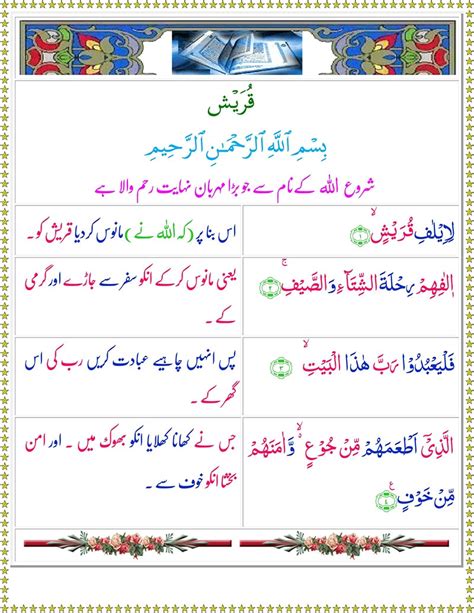 قُرَيْش
بِسْمِ اللَّهِ الرَّحْمَٰنِ الرَّحِيمِ
شروع اللہ کے نام سے جو بڑا مہربان نہایت رحم والا ہے
لِاِيْلٰفِ قُرَيْشٍۙ ﴿۱﴾
اس بنا پر (کہ اللہ نے) مانوس کردیا قریش کو۔
اٖلٰفِهِمْ رِحْلَةَ الشِّتَآءِ وَالصَّيْفِۚ ﴿۲﴾
یعنی مانوس کرکے انکو سفر سے جاڑے اور گرمی
کے ۔
فَلْيَعْبُدُوْا رَبَّ هٰذَا الْبَيْتِۙ ﴿۳﴾
پس انہیں چاہیے عبادت کریں رب کی اس
گھر کے ۔
الَّذِىْٓ اَطْعَمَهُمْ مِّنْ جُوْعٍ ۙ وَّاٰمَنَهُمْ
مِّنْ خَوْفٍ ﴿۴﴾
جس نے کھانا کھلایا انکو بھوک میں ۔ اور امن
بخشا انکو خوف سے ۔